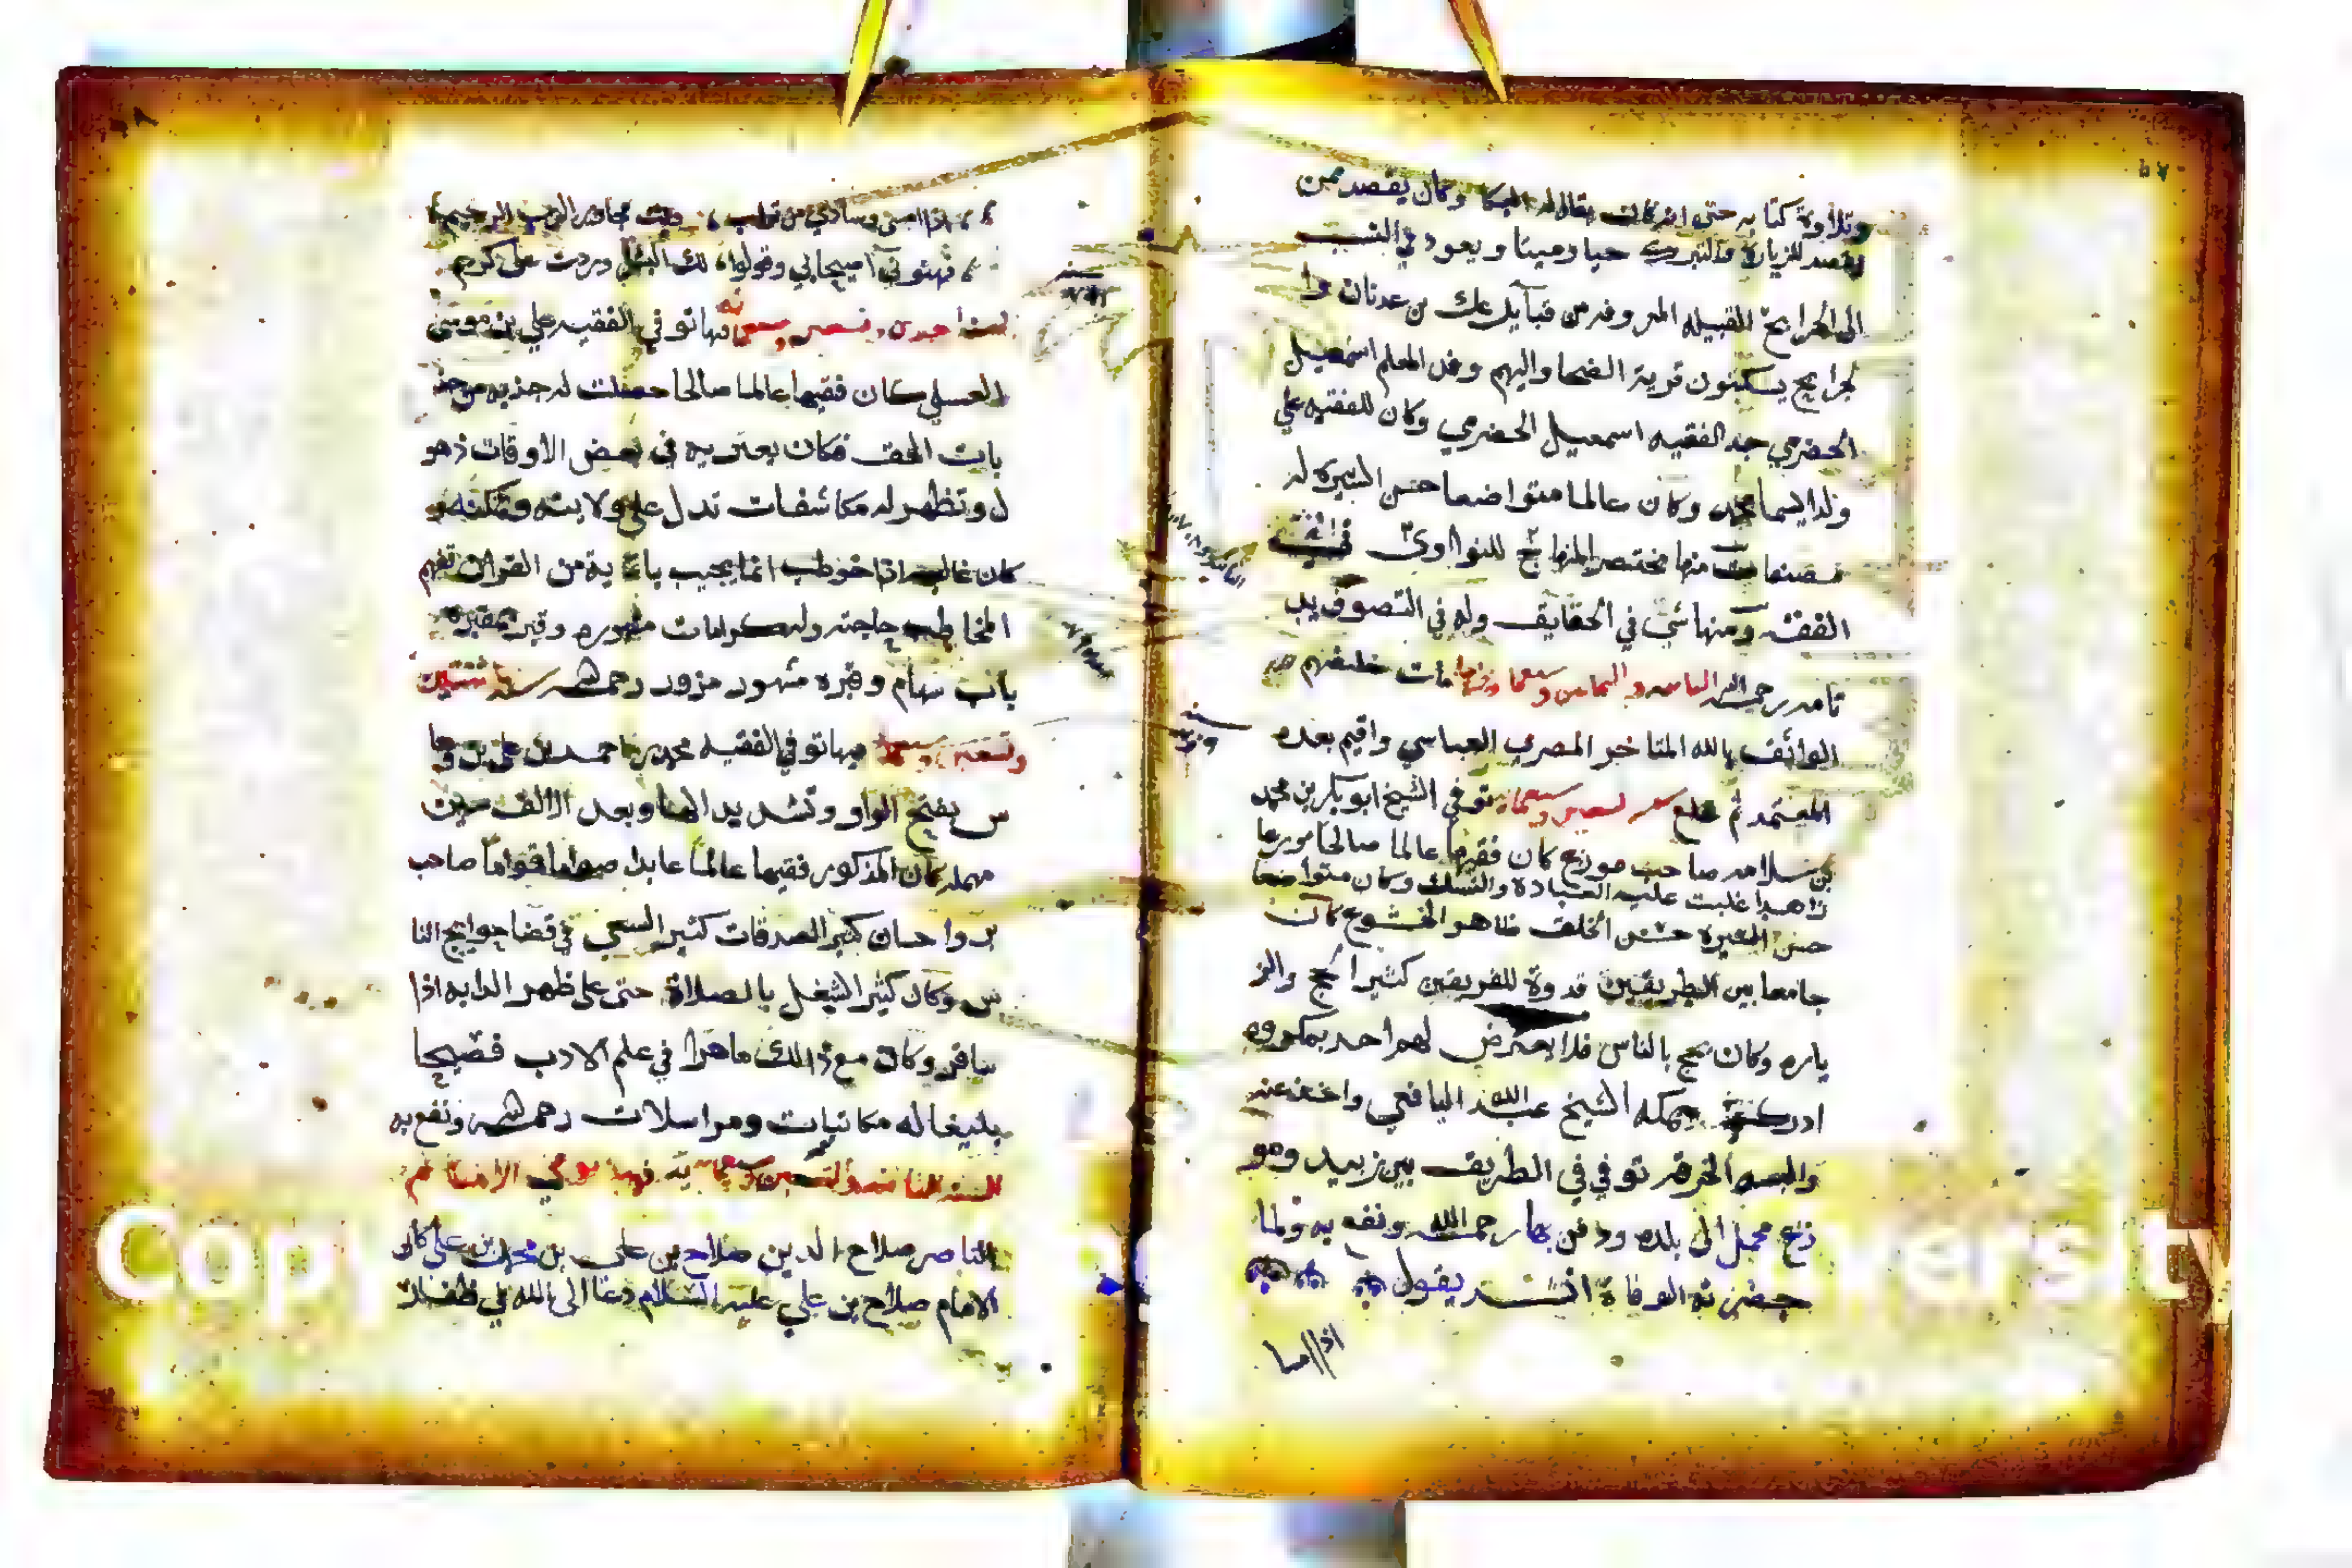 وتلاوة كتابه حتى انه كان يقال له البكا وكان يقصد ممن
يقصد للزيارة والتبرك حيا وميتا ويعود في النسب
الى الجرابح القبيله المعروفه من قبايل عك بن عدنان وا
لجرابح يسكنون قرية الضحا واليهم وفد المعلم اسمعيل
الحضرمي جد الفقيه اسمعيل الحضرمي وكان للفقيه علي
ولدا يسما محمد وكان عالما متواضعا حسن السيره له
مصنفات منها مختصر المنهاج للنواوي في
الفقه ومنها شي في الحقايق وله في التصوف يد
تامه رحمه الله مات خليفتهم
الواثق بالله المتاخر المصري العباسي واقيم بعده
المعتمد ثم خلع توفي الشيخ ابو بكر بن محمد
بن سلامه صاحب موزع كان فقيها عالما صالحا مورعا
زاهدا غلبت عليه العباده والنسك وكان متواضعا
حسن السيرة حسن الخلق ظاهر الخشوع كان
جامعا بين الطريقين قدوة للفريقين كثيرا لحج والز
ياره وكان يحج بالناس فلا يعترض لهم احد بمكروه
ادرك بمكه الشيخ عبد الله اليافعي واخذ عنه
والبسه الخرقه توفي في الطريق بين زبيد ومو
زع محمل الى بلده ودفن بها رحمه الله ونفع به ولما
حضرته الوفاة انشد يقول
اذا امسا
اذا امسى وسادي من تراب وبت مجاور الرب الرحيم
فهنوني اصيحابي وقولوا لك البشرى وردت على كريم
سنة احدى وتسعين وسبعمائه فيها توفي الفقيه علي بن موسى
العسلي كان فقيها عالما صالحا حصلت له جذبه من جذ
بات الحق فكان يعتريه في بعض الاوقات ذهو
ل وتظهر له مكاشفات تدل على ولايته وتمكنه و
كان غالب اذا خوطب انما يجيب باءاية من القران تفهم
المخاطب حاجته وله كرامات مشهوره وقبره بمقبرة
باب سهام وقبره مشهور مزور رحمه الله سنة اثنتين
وتسعين وسبعمائه فيها توفي الفقيه محمد بن احمد بن علي بن وها
س بفتح الواو وتشديد الها وبعد الالف سين
مهمله كان المذكور فقيها عالما عابدا صواما قواما صاحب
بر واحسان كثير الصدقات كثير السعي في قضا حوايج النا
س وكان كثير الشغل بالصلاة حتى على ظهر الدابه اذا
سافر وكان مع ذالك ماهرا في علم الادب فصيحا
بليغا له مكاتبات ومراسلات رحمه الله ونفع به
توفي الامام
الناصر صلاح الدين صلاح بن علي بن محمد بن علي كان
الامام صلاح بن علي عليه السلام دعا الى الله في